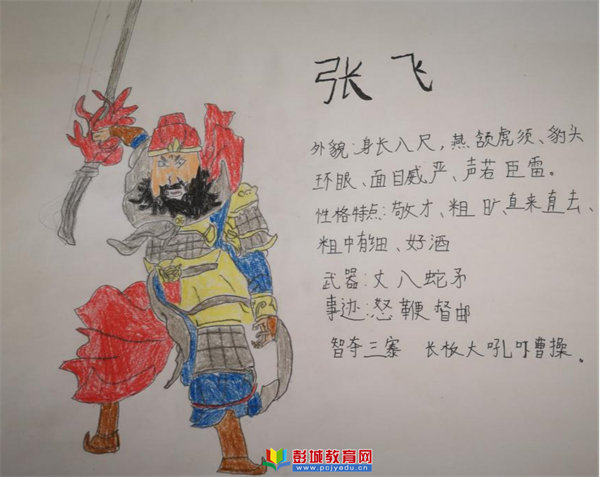 张飞
外貌:身长八尺,燕颔虎须、豹头
环眼、面目威严、声若臣雷。
性格特点:敬才、粗旷直来直去、
粗中有细、好酒
武器:丈八蛇矛
事迹:怒鞭督邮
智夺三寨 长坂大吼吓曹操。
彭城教育网
www.pcjyedu.cn